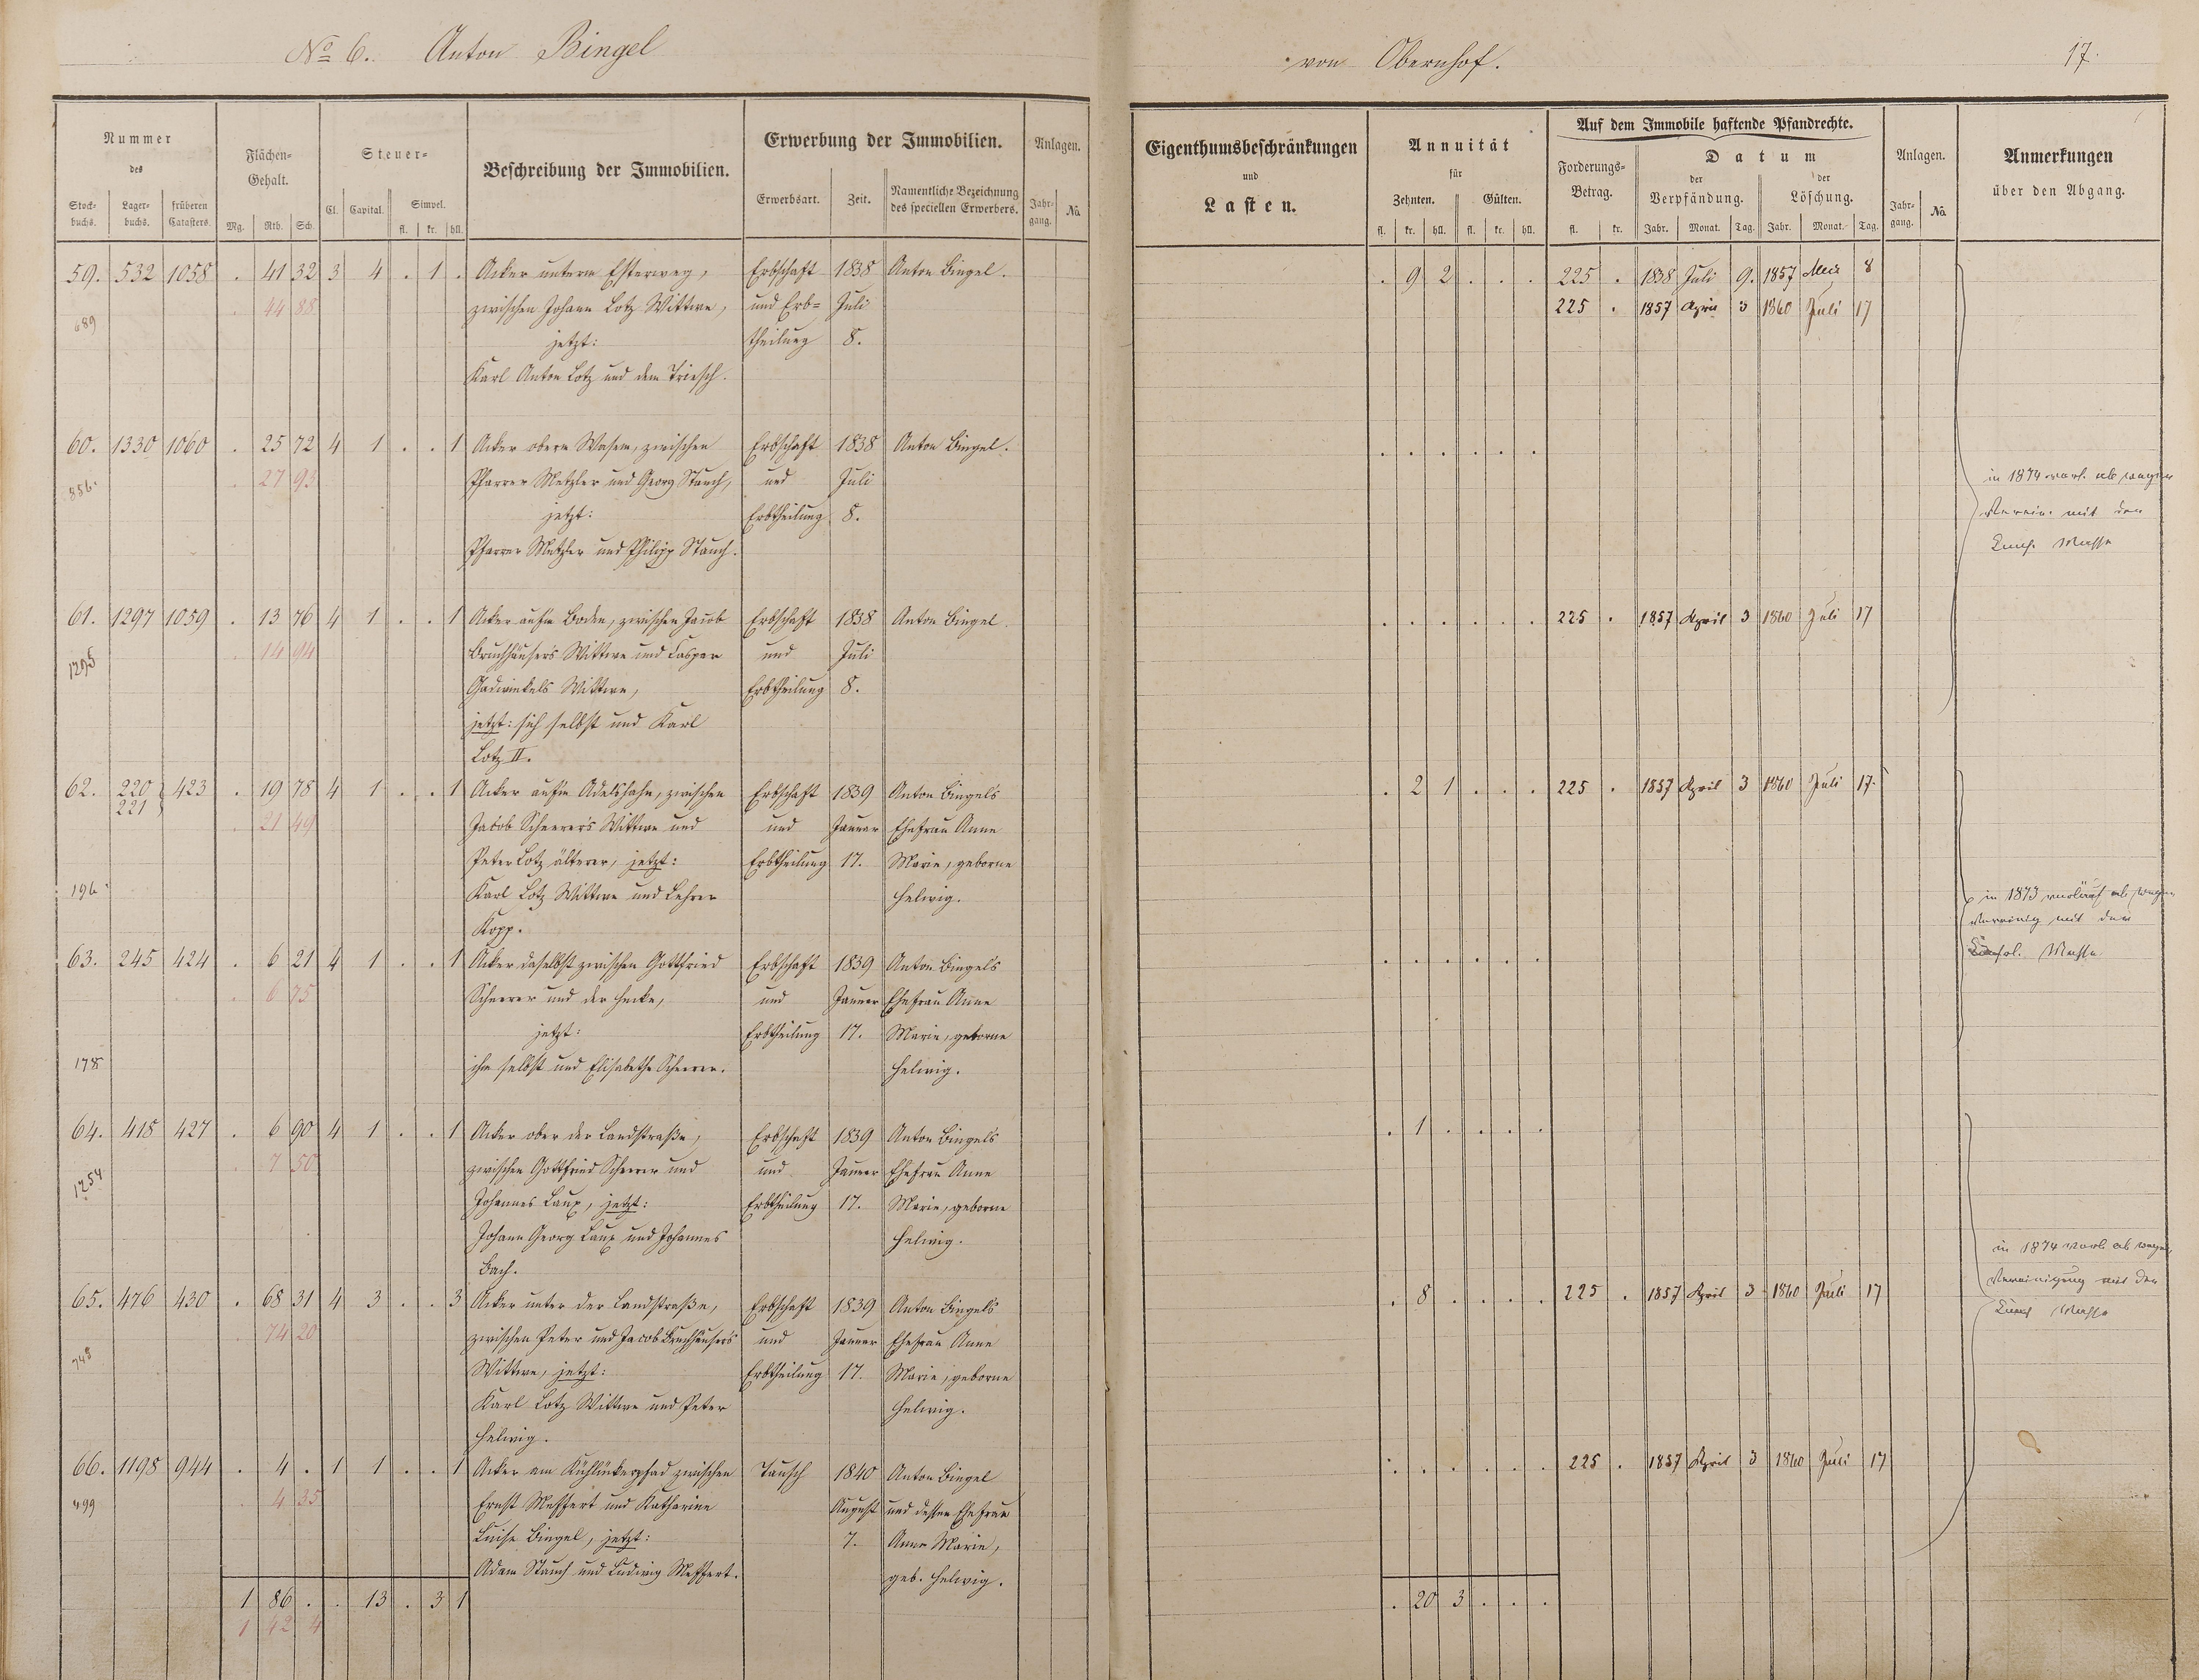 No 6. Anton Bingel
von Obernhof.
17.
Nummer
des
Stock-
buchs.
Lager-
buchs.
früheren
Catasters.
Flächen-
Gehalt.
Mg. Rth. Sch.
Steuer-
Cl. Capital. Simpel.
fl. kr. hll.
Beschreibung der Immobilien.
Erwerbung der Immobilien.
Erwerbsart. Zeit. Namentliche Bezeichnung
des speciellen Erwerbers.
Anlagen.
Jahr-
gang. No.
Eigenthumsbeschränkungen
und
Lasten.
Annuität
für
Zehnten. Gülten.
fl. kr. hll. fl. kr. hll.
Auf dem Immobile haftende Pfandrechte.
Forderungs-
Betrag.
fl. kr.
Datum
der
Verpfändung.
Jahr. Monat. Tag.
der
Löschung.
Jahr. Monat. Tag.
Anlagen.
Jahr-
gang. No.
Anmerkungen
über den Abgang.
59. 532 1058 . 41 32 3 4 . 1 . Acker unterm Esterweg, Erbschaft 1838 Anton Bingel.
689 . 44 88 zwischen Johann Lotz Wittwe, und Erb- Juli
jetzt: theilung 8.
Karl Anton Lotz und dem Driesch.
. 9 2 . . . 225 . 1838 Juli 9. 1857 Mai 8
225 . 1857 April 3 1860 Juli 17
60. 1330 1060 . 25 72 4 1 . . 1 Acker oberm Wasem, zwischen Erbschaft 1838 Anton Bingel.
856. . 27 93 Pfarrer Metzler und Georg Stauch, und Juli
jetzt: Erbtheilung 8.
Pfarrer Metzler und Philipp Stauch.
. . . . . .
in 1874 vorl. ab wegen
Verein. mit der
Masse
61. 1297 1059 . 13 76 4 1 . . 1 Acker aufm Boden, zwischen Jacob Erbschaft 1838 Anton Bingel.
1295 . 14 94 Bruchhäuser's Wittwe und Caspar und Juli
Wittwe, Erbtheilung 8.
jetzt: sich selbst und Karl
Lotz II.
. . . . . . 225 . 1857 April 3 1860 Juli 17
62. 220 221 423 . 19 78 4 1 . . 1 Acker aufm Adelshahn, zwischen Erbschaft 1839 Anton Bingel's
. 21 49 Jacob Scheerer's Wittwe und und Januar Ehefrau Anne
Peter Lotz älterer, jetzt: Erbtheilung 17. Marie, geborne
196. Karl Lotz Wittwe und Lehrer Helwig.
Kopp.
. 2 1 . . . 225 . 1857 April 3 1860 Juli 17.
in 1873 vorläuf ab wegen
Vereinig mit der
Consol. Masse
63. 245 424 . 6 21 4 1 . . 1 Acker daselbst zwischen Gottfried Erbschaft 1839 Anton Bingel's
. 6 75 Scheerer und der Hecke, und Januar Ehefrau Anne
jetzt: Erbtheilung 17. Marie, geborne
178 ihm selbst und Elisabethe Scheerer. Helwig.
. . . . . .
64. 418 427 . 6 90 4 1 . . 1 Acker ober der Landstraße, Erbschaft 1839 Anton Bingel's
1254 . 7 50 zwischen Gottfried Scheerer und und Januar Ehefrau Anne
Johannes Laux, jetzt: Erbtheilung 17. Marie, geborne
Johann Georg Laux und Johannes Helwig.
Bach.
. 1 . . . .
in 1874 vorl. ab wegen
Vereinigung mit der
Masse
65. 476 430 . 68 31 4 3 . . 3 Acker unter der Landstraße, Erbschaft 1839 Anton Bingel's
748 . 74 20 zwischen Peter und Jacob Bruchhäuser's und Januar Ehefrau Anne
Wittwe, jetzt: Erbtheilung 17. Marie, geborne
Karl Lotz Wittwe und Peter Helwig.
Helwig.
. 8 . . . . 225 . 1857 April 3 1860 Juli 17
66. 1198 944 . 4 . 1 1 . . 1 Acker am zwischen Tausch 1840 Anton Bingel
499 . 4 35 Ernst Meffert und Katharine August und dessen Ehefrau
Luise Bingel, jetzt: 7. Anne Marie,
Adam Stauch und Ludwig Meffert. geb. Helwig.
. . . . . . 225 . 1857 April 3 1860 Juli 17
1 86 . . 13 . 3 1
1 42 4
. 20 3 . . .